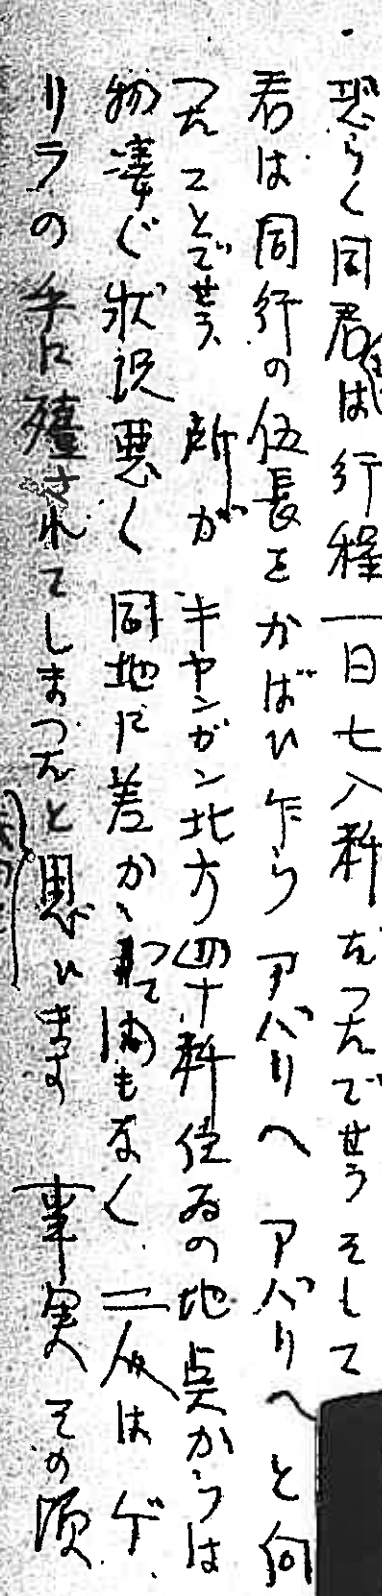 恐らく同君は行程一日七八粁だつたでせう そして
君は同行の伍長をかばひ乍らアパリへ アパリへと向
つたことでせう 所が キヤンガン北方四十粁位ゐの地点からは
物凄ぐ状況悪く 同地に差かゝつて間もなく 二人は ゲ
リラの手に殪されてしまつたと思ひます 事実その頃